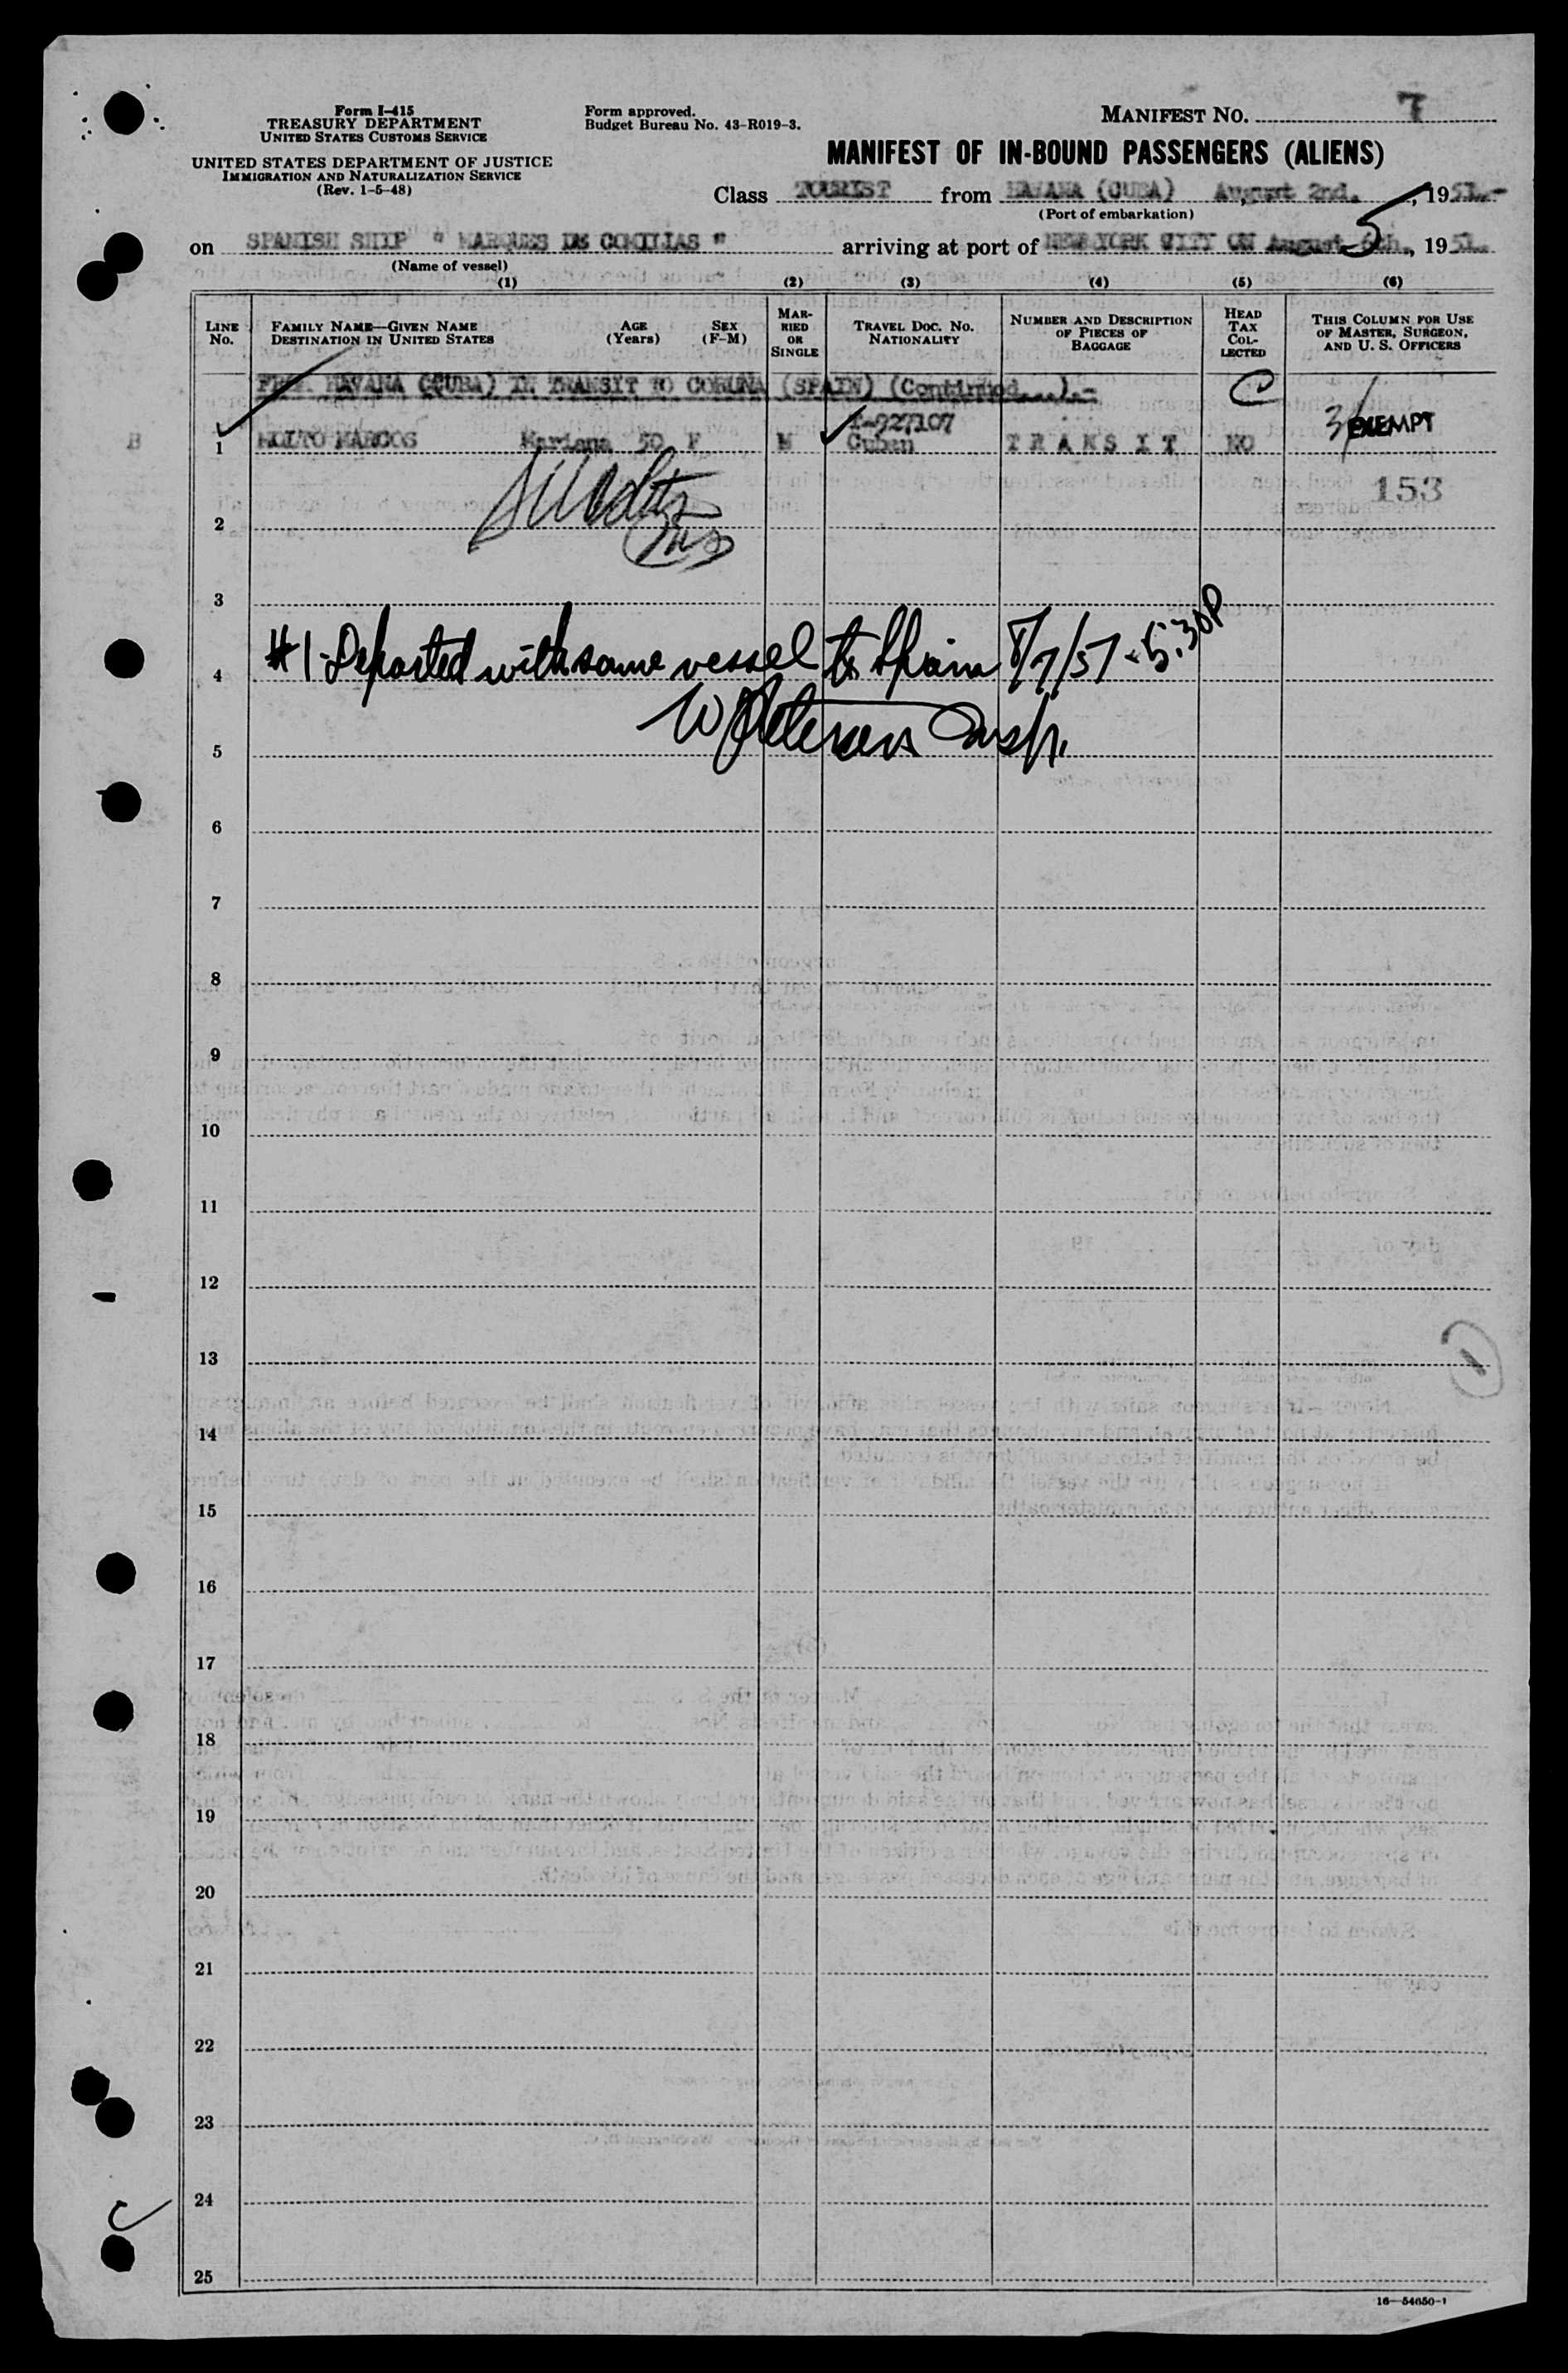 Form I-415
TREASURY DEPARTMENT
UNITED STATES CUSTOMS SERVICE
UNITED STATES DEPARTMENT OF JUSTICE
IMMIGRATION AND NATURALIZATION SERVICE
(Rev. 1-5-48)
Form approved.
Budget Bureau No. 43-R019-3.
MANIFEST NO. 7
MANIFEST OF IN-BOUND PASSENGERS (ALIENS)
Class TOURIST from HAVANA (CUBA) August 2nd. , 1951.-
(Port of embarkation)
on SPANISH SHIP " MARQUES DE COMILLAS " arriving at port of NEW YORK CITY ON August 5 th., 1951.
(Name of vessel)
(1) (2) (3) (4) (5) (6)
LINE No.
FAMILY NAME—GIVEN NAME
DESTINATION IN UNITED STATES
AGE (Years)
SEX (F-M)
MARRIED OR SINGLE
TRAVEL DOC. NO. NATIONALITY
NUMBER AND DESCRIPTION OF PIECES OF BAGGAGE
HEAD TAX COLLECTED
THIS COLUMN FOR USE OF MASTER, SURGEON, AND U. S. OFFICERS
FROM HAVANA (CUBA) IN TRANSIT TO CORUNA (SPAIN) (Continued...).-
C
T-927107
3/ EXEMPT
B
1 MOLTO MARCOS Mariana 50 F M Cuban T R A N S I T NO
153
2
3
#1-Departed with same vessel to Spain 8/7/51 - 5:30P
4
W Petersen Insp.
5
6
7
8
9
10
11
12
13
1
14
15
16
17
18
19
20
21
22
23
24
25
16—54650-1